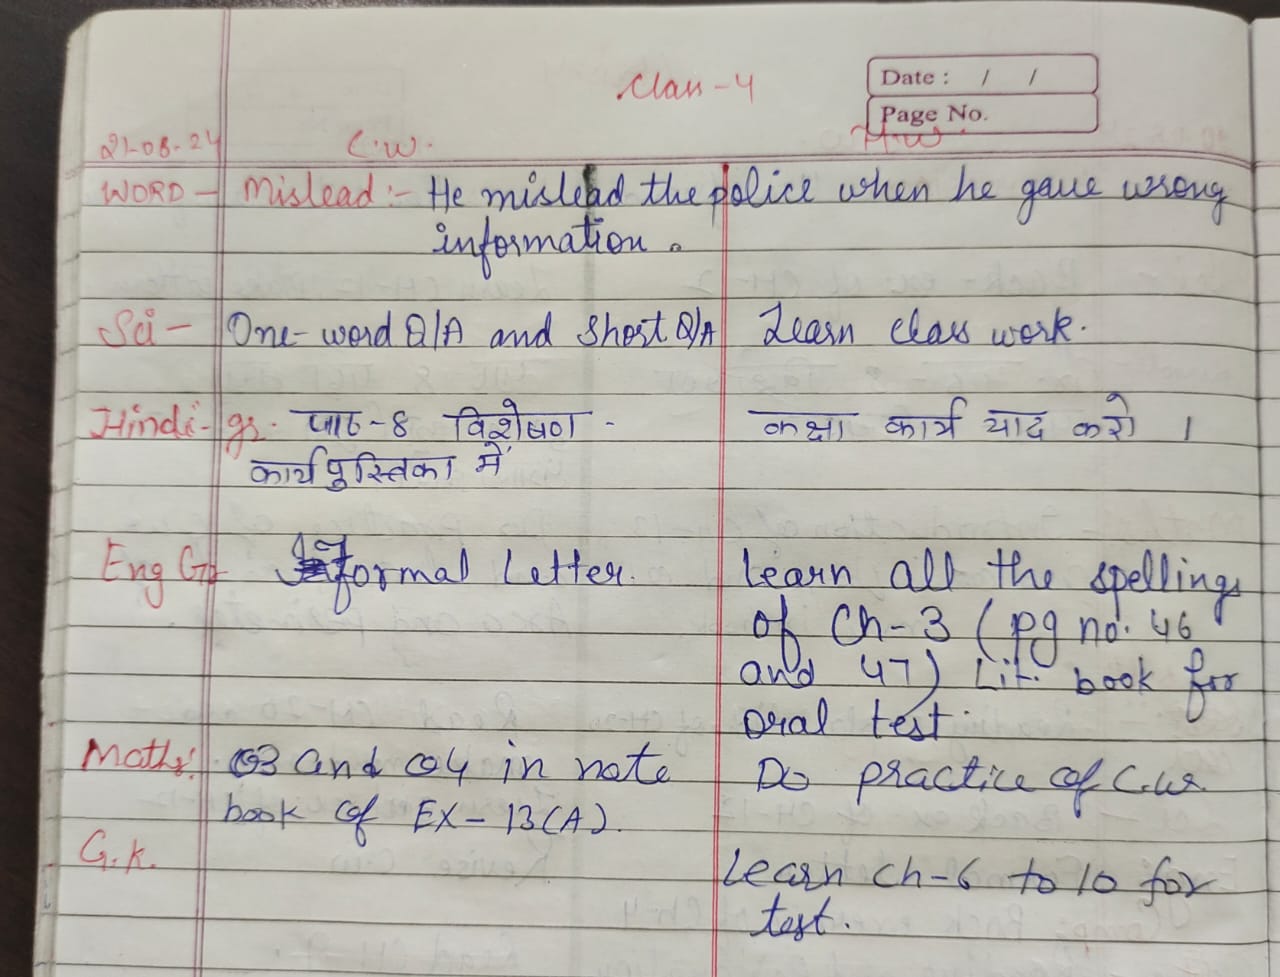 Class-4
Date : / /
Page No.
21-08-24 C.W. H.W.
WORD - Mislead :- He mislead the police when he gave wrong
information.
Sci - One-word Q/A and Short Q/A Learn class work.
Hindi- gr. पाठ-8 विशेषण - कक्षा कार्य याद करो ।
कार्यपुस्तिका में
Eng Gr formal Letter. Learn all the spellings
of Ch-3 (pg no. 46
and 47) Lit. book for
Oral test.
Maths: Q3 and Q4 in note Do practice of C.W.
book of EX-13(A).
G.K. Learn Ch-6 to 10 for
test.